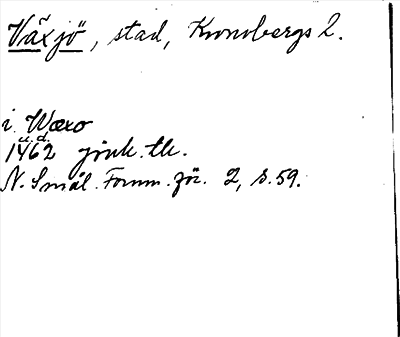 Växjö, stad, Kronobergs l.
i Wæxo
u.d.
1462 jönk. tk.
N. Smål. Fornm. för. 2, s. 59.